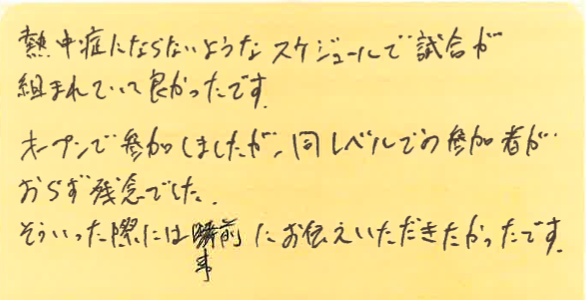 熱中症にならないようなスケジュールで試合が
組まれていて良かったです.
オープンで参加しましたが、同レベルでの参加者が
おらず残念でした.
そういった際には事前にお伝えいただきたかったです.